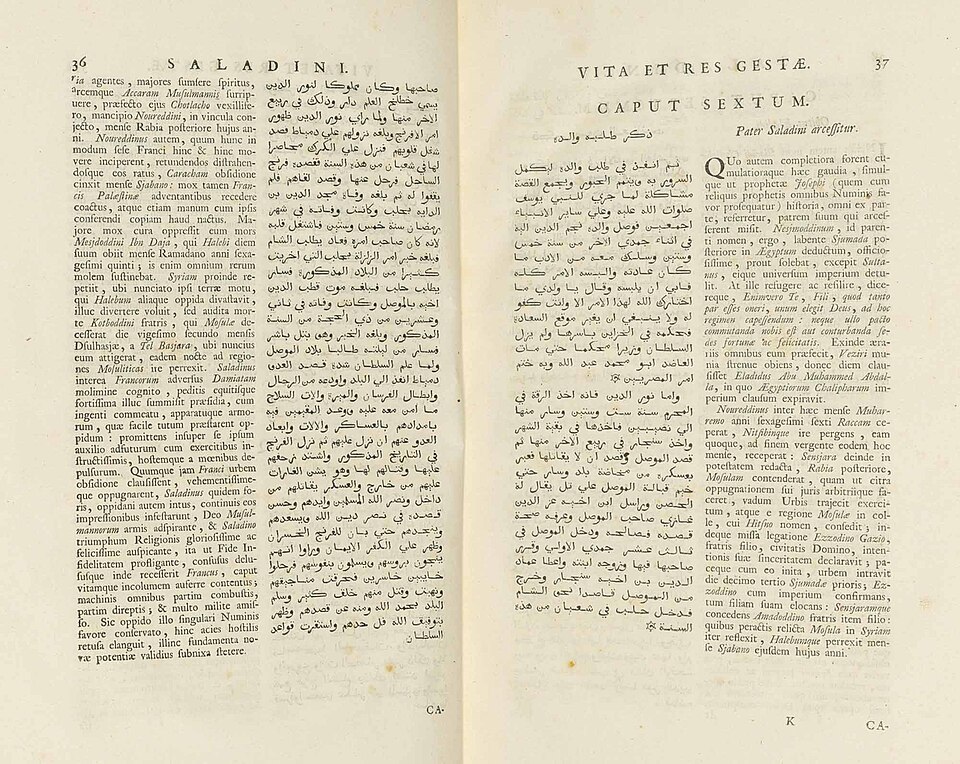 36 SALADINI.
ria agentes, majores sumsere spiritus,
arcemque Accaram Musulmannis surrip-
uere, præfecto ejus Chotlacho vexillife-
ro, mancipio Noureddini, in vincula con-
jecto, mense Rabia posteriore hujus an-
ni. Noureddinus autem, quum hunc in
modum sese Franci hinc & hinc mo-
vere inciperent, retundendos distrahen-
dosque eos ratus, Caracham obsidione
cinxit mense Sjabano: mox tamen Fran-
cis Palæstinæ adventantibus recedere
coactus, atque etiam manum cum ipsis
conserendi copiam haud nactus. Ma-
jore mox cura oppressit eum mors
Mesjdoddini Ibn Daja, qui Halebi diem
suum obiit mense Ramadano anni sexa-
gesimi quinti; is enim omnium rerum
molem sustinebat. Syriam proinde re-
petiit, ubi nunciato ipsi terræ motu,
qui Halebum aliaque oppida divastavit,
illuc divertere voluit, sed audita mor-
te Kotboddini fratris, qui Mosulæ de-
cesserat die vigesimo secundo mensis
Dsulhasjæ, a Tel Basjera, ubi nuncius
eum attigerat, eadem nocte ad regio-
nes Mosuliticas ire perrexit. Saladinus
interea Francorum adversus Damiatam
molimine cognito, peditis equitisque
fortissima illuc summisit præsidia, cum
ingenti commeatu, apparatuque armo-
rum, quæ facile tutum præstarent op-
pidum: promittens insuper se ipsum
auxilio adsuturum cum exercitibus in-
structissimis, hostemque a mœnibus de-
pulsurum. Quumque jam Franci urbem
obsidione clausissent, vehementissime-
que oppugnarent, Saladinus quidem fo-
ris, oppidani autem intus, continuis eos
impressionibus infestarunt, Deo Musul-
mannorum armis adspirante, & Saladino
triumphum Religionis gloriosissime ac
felicissime auspicante, ita ut Fide In-
fidelitatem profligante, confusus delu-
susque inde recesserit Francus, caput
vitamque incolumem auferre contentus;
machinis omnibus partim combustis,
partim direptis; & multo milite amis-
so. Sic oppido illo singulari Numinis
favore conservato, hinc acies hostilis
retusa elanguit, illinc fundamenta no-
væ potentiæ validius subnixa stetere.
صاحبها وكان مملوكا لنور الدين
يسمي خطلخ العلم دار وذلك في ربيع
الاخر منها ولما راي نور الدين ظهور
امر الافرنج وبلغه نزولهم علي دمياط قصد
شغل قلوبهم فنزل علي الكرك محاصرا
لها في شعبان من هذه السنة فقصده فرنج
الساحل فرحل عنها وقصد لقاهم فلم
يقفوا له ثم بلغه وفاة مجد الدين بن
الدايه بحلب وكانت وفاته في شهر
رمضان سنة خمس وستين فاشتغل قلبه
لانه كان صاحب امره فعاد يطلب الشام
فبلغه خبر امر الزلزلة بحلب التي اخربت
كثيرا من البلاد المذكورة فسار
يطلب حلب فبلغه موت قطب الدين
اخيه بالموصل وكانت وفاته في ثاني
وعشرين من ذي الحجة من السنة
المذكورة وبلغه الخبر وهو بتل باشر
فسار من ليلته طالبا بلاد الموصل
ولما علم السلطان شدة قصد العدو
دمياط انفذ الي البلد واودعه من الرجال
وابطال الفرسان والميرة والات السلاح
ما امن معه عليه ووعد المقيمين فيه
بامدادهم بالعساكر والالات وابعاد
العدو عنهم ان نزل عليهم ثم نزل الفرنج
في التاريخ المذكور واشتد زحفهم
عليها وقتالهم لها وهو يشن الغارات
عليهم من خارج والعسكر يقاتلهم من
داخل ونصر الله المسلمين وايدهم وحسن
قصده في نصر دين الله ويسعدهم
وينجدهم حتي بان للفرنج الخسران
وظهر علي الكفر الايمان وراوا انهم
ينجون بروسهم ويسلمون بنفوسهم فرحلوا
خايبين خاسرين فحرقت مناجيقهم
ونهبت وقتل منهم خلف كثير وسلم
البلد بحمد الله ومنه عن قصدهم وظهر
بتوفيق الله فل حدهم واستقرت قواعد
السلطان
CA-
VITA ET RES GESTÆ. 37
CAPUT SEXTUM.
ذكر طلبه والده
ثم انفذ في طلب والده ليكمل
السرور به ويتم الحبور ويجمع القصة
مشاكلة لما جري للنبي يوسف
صلوات الله عليه وعلي ساير الانبياء
اجمعين فوصل والده نجم الدين اليه
في اثناء جمدي الاخر من سنة خمس
وستين وسلك معه من الادب ما
كان عادته والبسه الامر كله
فابي ان يلبسه وقال يا ولدي ما
اختارك الله لهذا الامر الا وانت كفو
له ولا ينبغي ان يغير موقع السعادة
فحكمه في الخزاين باسرها ولم يزل
السلطان وزيرا محكما حتي مات
العاضد ابو محمد عبد الله وبه ختم
امر المصريين
واما نور الدين فانه اخذ الرقة في
المحرم سنة ست وستين وسار منها
الي نصيبين فاخذها في بقية الشهر
واخذ سنجار في ربيع الاخر منها ثم
قصد الموصل وقصد ان لا يقاتلها فعبر
بعسكره من مخاضة بلد وسار حتي
خيم قبالة الموصل علي تل يقال له
الحصن وراسل ابن اخيه عز الدين
غازي صاحب الموصل وعرفه صحة
قصده فصالحه ودخل الموصل في
ثالث عشر جمدي الاولي وقرر
صاحبها فيها وزوجه ابنته واعطا عماد
الدين بن اخيه سنجار وخرج
من الموصل قاصدا نحو الشام
فدخل حلب في شعبان من هذه
السنة
Pater Saladini arcessitur.
QUo autem completiora forent cu-
mulatioraque hæc gaudia, simul-
que ut prophetæ Josephi (quem cum
reliquis prophetis omnibus Numinis fa-
vor prosequatur) historia, omni ex par-
te, referretur, patrem suum qui arces-
serent misit. Nesjmoddinum, id paren-
ti nomen, ergo, labente Sjumada po-
steriore in Ægyptum deductum, officio-
sissime, prout solebat, excepit Sulta-
nus, eique universum imperium detu-
lit. At ille refugere ac resilire, dice-
reque, Enimvero Te, Fili, quod tanto
par esses oneri, unum elegit Deus, ad hoc
regimen capessendum: neque ullo pacto
commutanda nobis est aut conturbanda se-
des fortunæ ac felicitatis. Exinde æra-
riis omnibus eum præfecit, Veziri mu-
nia strenue obiens, donec diem clau-
sisset Eladidus Abu Muhammed Abdal-
la, in quo Ægyptiorum Chalipharum im-
perium clausum expiravit.
Noureddinus inter hæc mense Muhar-
remo anni sexagesimi sexti Raccam ce-
perat, Nitsibinque ire pergens, eam
quoque, ad finem vergente eodem hoc
mense, receperat: Sensjara deinde in
potestatem redacta, Rabia posteriore,
Mosulam contenderat, quam ut citra
oppugnationem sui juris arbitriique fa-
ceret, vadum Urbis trajecit exerci-
tum, atque e regione Mosulæ in col-
le, cui Hitsno nomen, consedit; in-
deque missa legatione Ezzodino Gazio,
fratris filio, civitatis Domino, inten-
tionis suæ sinceritatem declaravit; pa-
ceque cum eo inita, urbem intravit
die decimo tertio Sjumadæ prioris; Ez-
zoddino cum imperium confirmans,
tum filiam suam elocans: Sensjaramque
concedens Amadoddino fratris item filio:
quibus peractis relicta Mosula in Syriam
iter reflexit, Halebumque perrexit men-
se Sjabano ejusdem hujus anni.
K
CA-